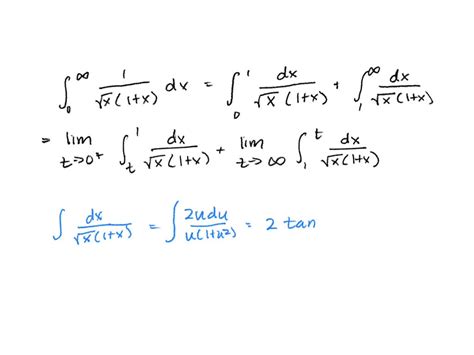 ∫₀^∞ 1/(√x(1+x)) dx = ∫₀^1 dx/(√x(1+x)) + ∫₁^∞ dx/(√x(1+x))
= lim_{t→0⁺} ∫_t^1 dx/(√x(1+x)) + lim_{t→∞} ∫₁^t dx/(√x(1+x))
∫ dx/(√x(1+x)) = ∫ 2u du/(u(1+u²)) = 2 tan